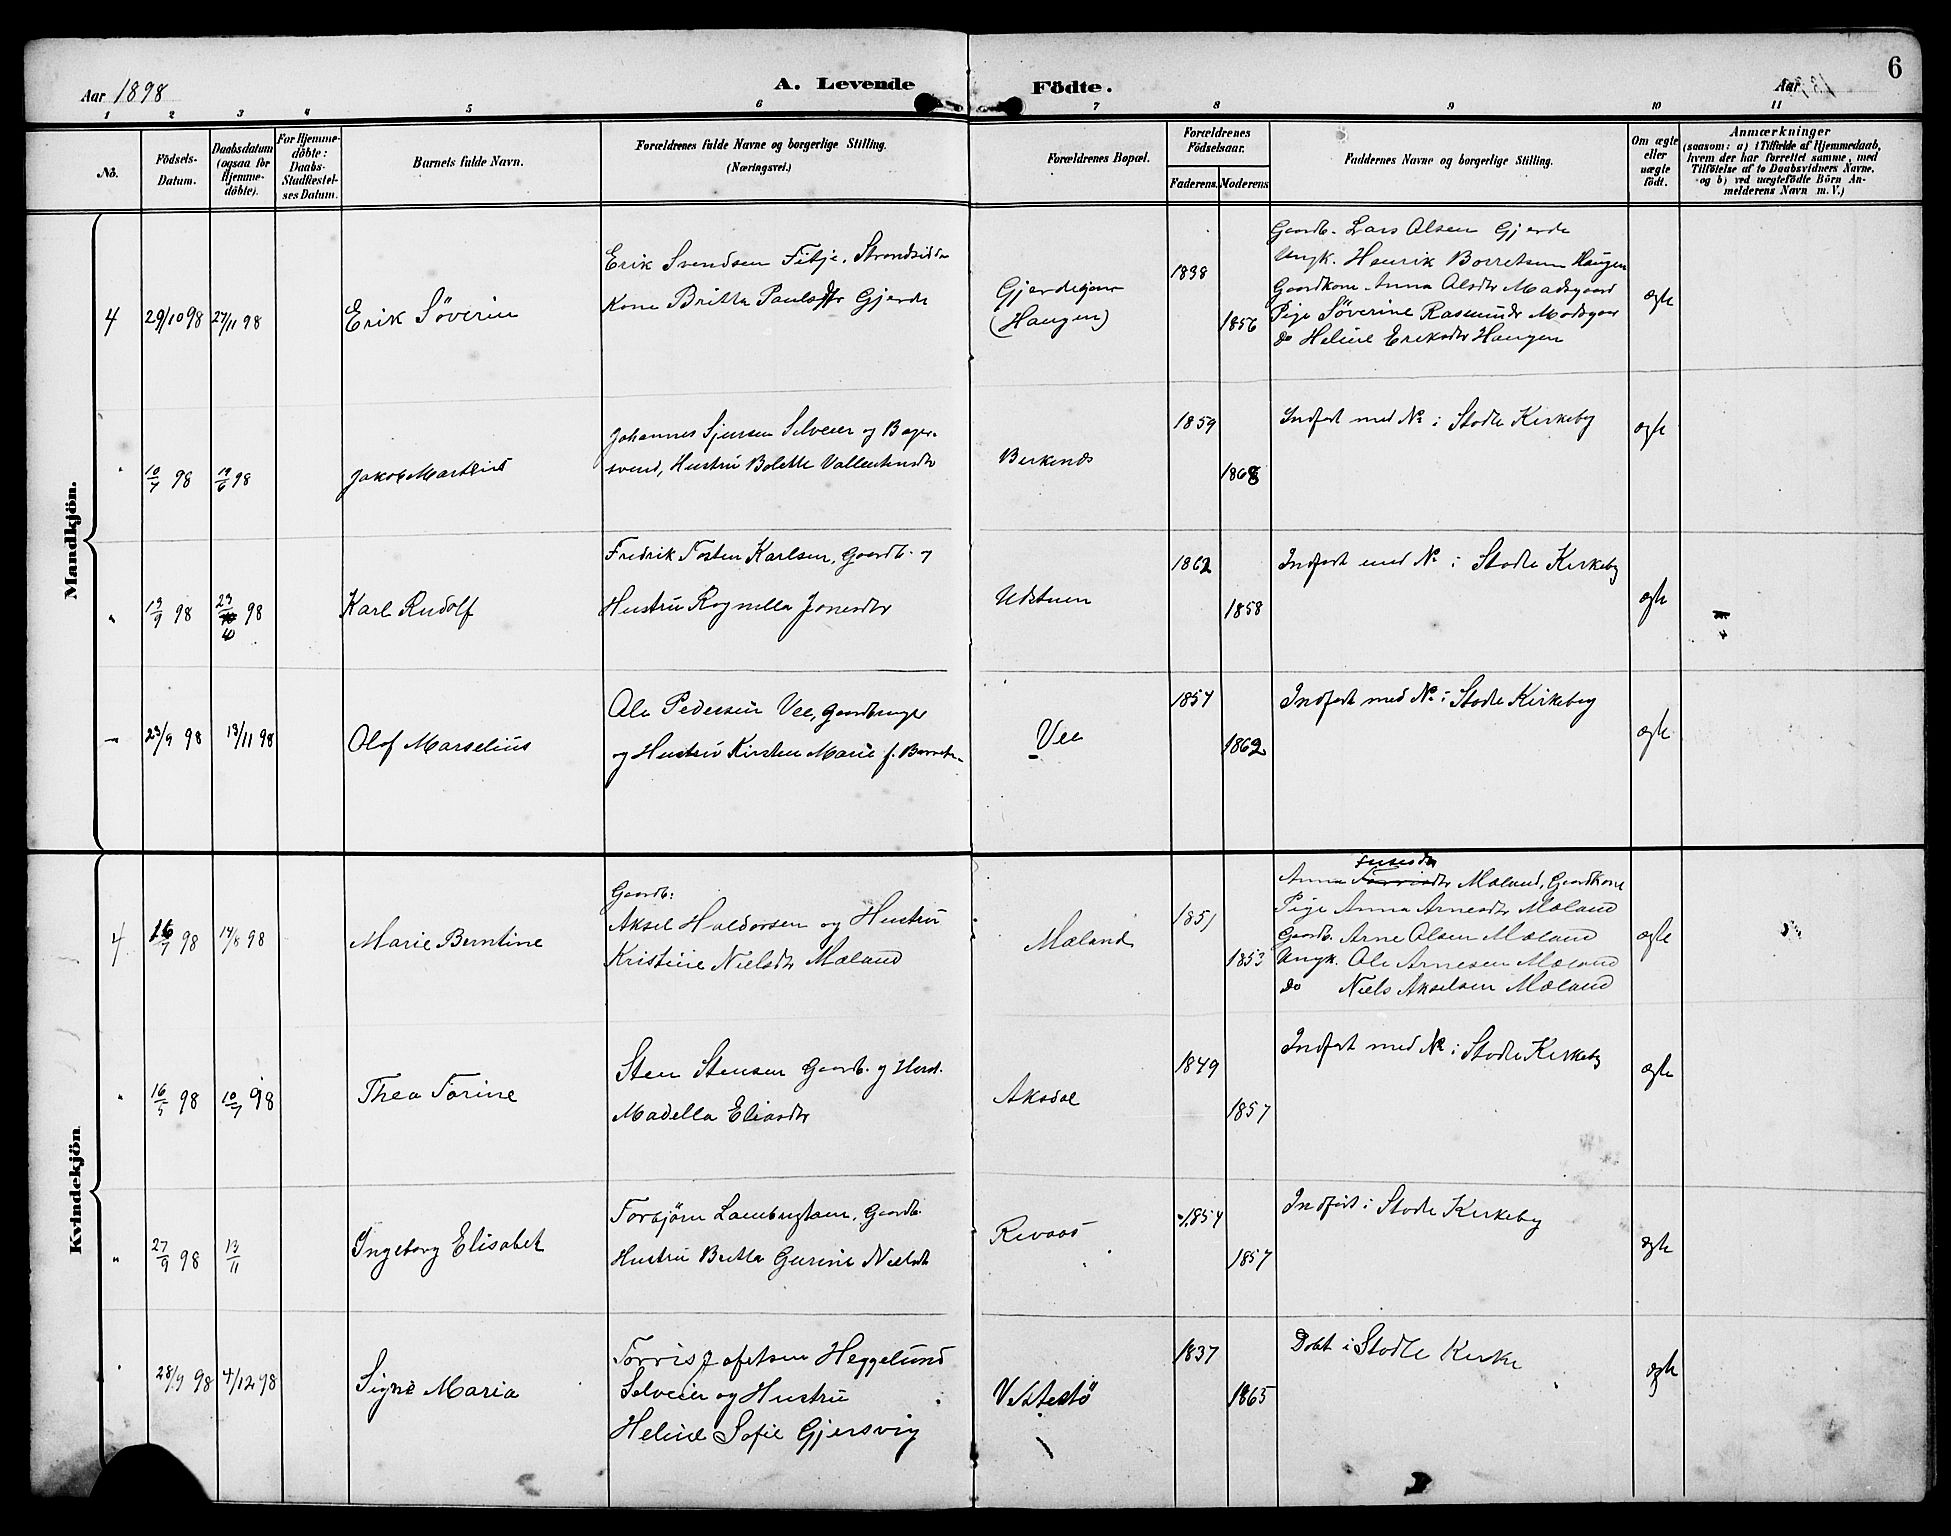 Aar 1898
A. Levende
Födte.
Aar
6
1 2 3 4 5 6 7 8 9 10 11
No.
Födsels-Datum.
Daabsdatum (ogsaa for Hjemme-döbte).
For Hjemme-döbte: Daabs-Stadfæstel-ses Datum.
Barnets fulde Navn.
Forældrenes fulde Navne og borgerlige Stilling.
(Næringsvei.)
Forældrenes Bopæl.
Forældrenes Födselsaar.
Faderens. Moderens
Faddernes Navne og borgerlige Stilling.
Om ægte eller uægte födt.
Anmærkninger
(saasom: a) i Tilfælde af Hjemmedaab,
hvem der har forrettet samme, med
Tilföielse af to Daabsvidners Navne,
og b) ved uægtefödte Börn An-
melderens Navn m. V.)
Mandkjön.
4 29/10 98 27/11 98 Erik Søverin
Erik Svendsen Fitje, Strandsidder
Kone Britta Paulsdtr Gjerde
(Haugen)
1838
1856
Gaardb. Lars Olsen Gjerde
Ungk. Henrik Borretsen Haugen
Gaardkone Anna Olsdtr Madsgaard
Pige Søverine Rasmusdr
do Heline Eriksdtr Haugen
ægte
" 10/7 98 98 Jakob Martin
Johannes Sjursen Selveier og Bager-
svend, Hustru Bolette
1859
1868
Indført med No i Stodle Kirkeby
ægte
" 19/9 98 23/10 98 Karl Rudolf
Fredrik Tosten Karlsen, Gaardb. og
Hustru Rognilla Jonesdtr
Udstuen
1862
1858
Indført med No i Stodle Kirkeby
ægte
23/9 98 13/11 98 Olof Marselius
Ole Pedersen Vee, Gaardbruger
og Hustru Kirsten Marie f.
Vee
1857
1862
Indført med No i Stodle Kirkeby
ægte
Kvindekjön.
4 16/7 98 14/8 98 Marie Berntine
Gaardb:
Aksel Haldorsen og Hustru
Kristine Nielsdtr Mæland
Mæland
1851
1853
Anna Mæland, Gaardkone
Pige Anna Arnesdtr Mæland
Gaardb. Arne Olsen Mæland
Ungk. Ole Arnesen Mæland
do Niels Akselsen Mæland
ægte
" 16/5 98 10/7 98 Thea Torine
Sten Stensen Gaardb. og Hust.
Madella Eliasdtr
Aksdal
1849
1857
Indført med No i Stodle Kirkeby
ægte
" 27/9 98 13/11 Ingeborg Elisabet
Torbjørn Gaardb.
Hustru Britta Gurine Nielsdt
Revaas
1854
1857
Indført i Stodle Kirkeby
ægte
" 28/9 98 4/12 98 Signe Maria
Torris Jofetsen Heggelund
Selveier og Hustru
Heline Sofie Gjersvig
1837
1865
Døbt i Stodle Kirke
ægte